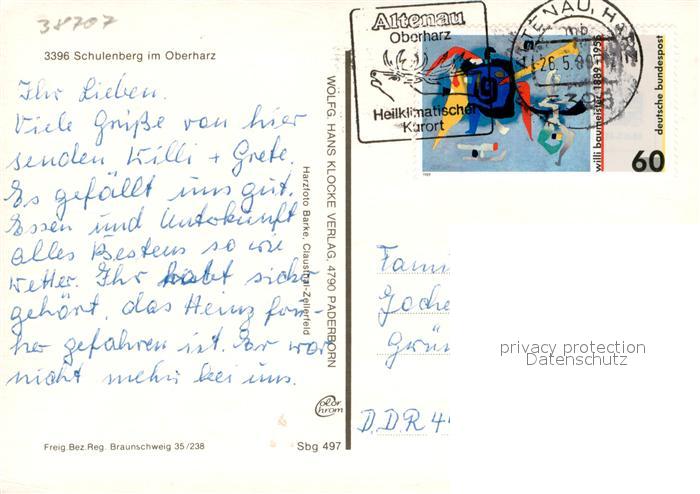 38707
3396 Schulenberg im Oberharz
Ihr Lieben.
Viele Grüße von hier
senden Willi + Grete.
Es gefällt uns gut.
Essen und Unterkunft
alles Bestens so wie
Wetter. Ihr habt sicher
gehört, das Heinz
gefahren ist. Er war
nicht mehr bei uns.
Freig.Bez.Reg. Braunschweig 35/238
Sbg 497
WOLFG. HANS KLOCKE VERLAG, 4790 PADERBORN
Harzfoto Barke, Clausthal-Zellerfeld
color
chrom
Altenau
Oberharz
Heilklimatischer
Kurort
ALTENAU, HARZ
26.5.89
willi baumeister 1889-1955
deutsche bundespost
60
1989
Fam
Joche
Grün
DDR 44
privacy protection
Datenschutz